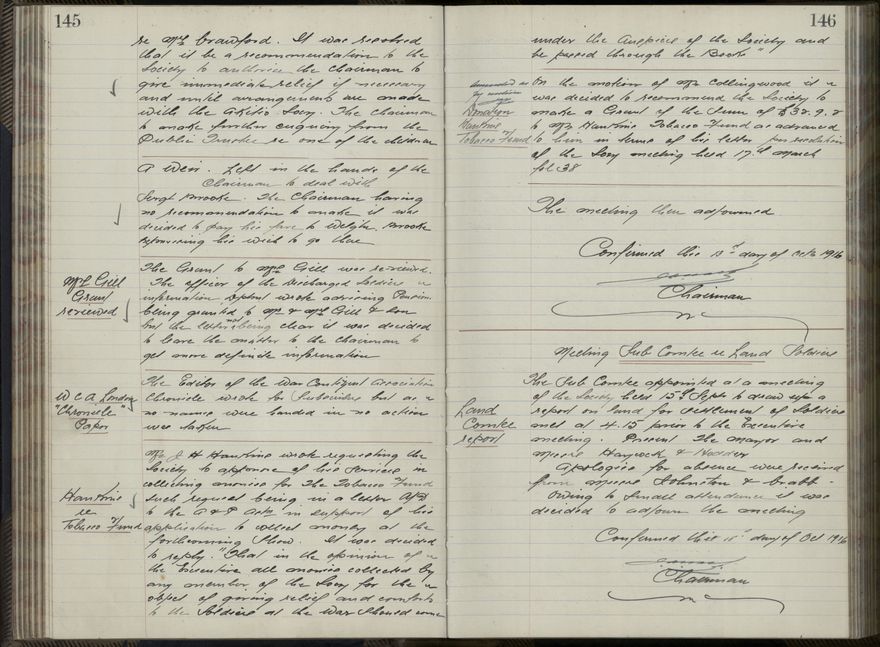 145
re Mrs Crawford. It was resolved
that it be a recommendation to the
Society to authorise the Chairman to
give immediate relief if necessary
and until arrangements are made
with the Socy. The Chairman
to make further enquiry from the
Public Trustee re one of the children
A Weir. Left in the hands of the
Chairman to deal with
Sergt Brooke. The Chairman having
no recommendation to make it was
decided to pay his fare to Welgtn. Brooke
expressing his wish to go there
Mrs Gill
Grant
reviewed
The Grant to Mrs Gill was reviewed.
The officer of the Discharged Soldiers
information Dept wrote advising Pension
being granted to Mr & Mrs Gill & son
but the letter not being clear it was decided
to leave the matter to the Chairman to
get more definite information
W C A London
"Chronicle"
Paper
The Editor of the War Contgent Association
Chronicle wrote for Subscribers but as
no names were handed in no action
was taken
Hawkins
re
Tobacco Fund
Mr J H Hawkins wrote requesting the
Society to approve of his services in
collecting monies for The Tobacco Fund
such request being in a letter
to the A & P Assn in support of his
application to collect money at the
forthcoming Show. It was decided
to reply. "That in the opinion of
the Executive all monies collected by
any member of the Socy for the
object of giving relief and comforts
to the Soldiers at the War should come
146
under the Auspices of the Society and
be passed through the Books"
amended
by motion
Donation
Hawkins
Tobacco Fund
On the motion of Mr Collingwood it
was decided to recommend the Society to
make a Grant of the sum of £32.9.2
to Mr Hawkins Tobacco Fund as advanced
to him in terms of his letter per resolution
of the Socy meeting held 17th March
fol 38
The meeting then adjourned.
Confirmed this day of Octo 1916
Chairman
Meeting Sub Comtee re Land Soldiers
Land
Comtee
report
The Sub Comtee appointed at a meeting
of the Society held 15th Septr to draw up a
report on land for settlement of Soldiers
met at 4.15 prior to the Executive
meeting. Present The Mayor and
Messrs Haycock & Hodder
Apologies for absence were received
from Messrs Johnston & Crabb.
Owing to small attendance it was
decided to adjourn the meeting
Confirmed this day of Oct 1916
Chairman